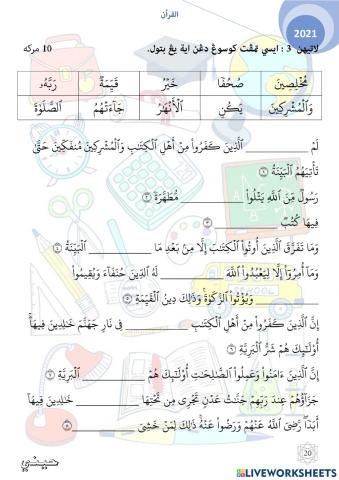 القرآن
2021
لاتيهن 3 : ايسي تمڤت كوسوڠ دڠن اية يڠ بتول.
10 مركه
مُخْلِصِينَ صُحُفًا خَيْرُ قَيِّمَةٌ رَبَّهُۥ
وَٱلْمُشْرِكِينَ يَكُنِ ٱلْأَنْهَٰرُ جَآءَتْهُمُ ٱلصَّلَوٰةَ
لَمْ ________ ٱلَّذِينَ كَفَرُوا۟ مِنْ أَهْلِ ٱلْكِتَٰبِ وَٱلْمُشْرِكِينَ مُنفَكِّينَ حَتَّىٰ
تَأْتِيَهُمُ ٱلْبَيِّنَةُ ١
رَسُولٌ مِّنَ ٱللَّهِ يَتْلُوا۟ ________ مُّطَهَّرَةً ٢
فِيهَا كُتُبٌ ________ ٣
وَمَا تَفَرَّقَ ٱلَّذِينَ أُوتُوا۟ ٱلْكِتَٰبَ إِلَّا مِنۢ بَعْدِ مَا ________ ٱلْبَيِّنَةُ ٤
وَمَآ أُمِرُوٓا۟ إِلَّا لِيَعْبُدُوا۟ ٱللَّهَ ________ لَهُ ٱلدِّينَ حُنَفَآءَ وَيُقِيمُوا۟
________ وَيُؤْتُوا۟ ٱلزَّكَوٰةَ ۚ وَذَٰلِكَ دِينُ ٱلْقَيِّمَةِ ٥
إِنَّ ٱلَّذِينَ كَفَرُوا۟ مِنْ أَهْلِ ٱلْكِتَٰبِ ________ فِى نَارِ جَهَنَّمَ خَٰلِدِينَ فِيهَآ ۚ
أُو۟لَٰٓئِكَ هُمْ شَرُّ ٱلْبَرِيَّةِ ٦
إِنَّ ٱلَّذِينَ ءَامَنُوا۟ وَعَمِلُوا۟ ٱلصَّٰلِحَٰتِ أُو۟لَٰٓئِكَ هُمْ ________ ٱلْبَرِيَّةِ ٧
جَزَآؤُهُمْ عِندَ رَبِّهِمْ جَنَّٰتُ عَدْنٍ تَجْرِى مِن تَحْتِهَا ________ خَٰلِدِينَ فِيهَآ
أَبَدًا ۖ رَّضِىَ ٱللَّهُ عَنْهُمْ وَرَضُوا۟ عَنْهُ ۚ ذَٰلِكَ لِمَنْ خَشِىَ ________ ٨
20
LIVEWORKSHEETS